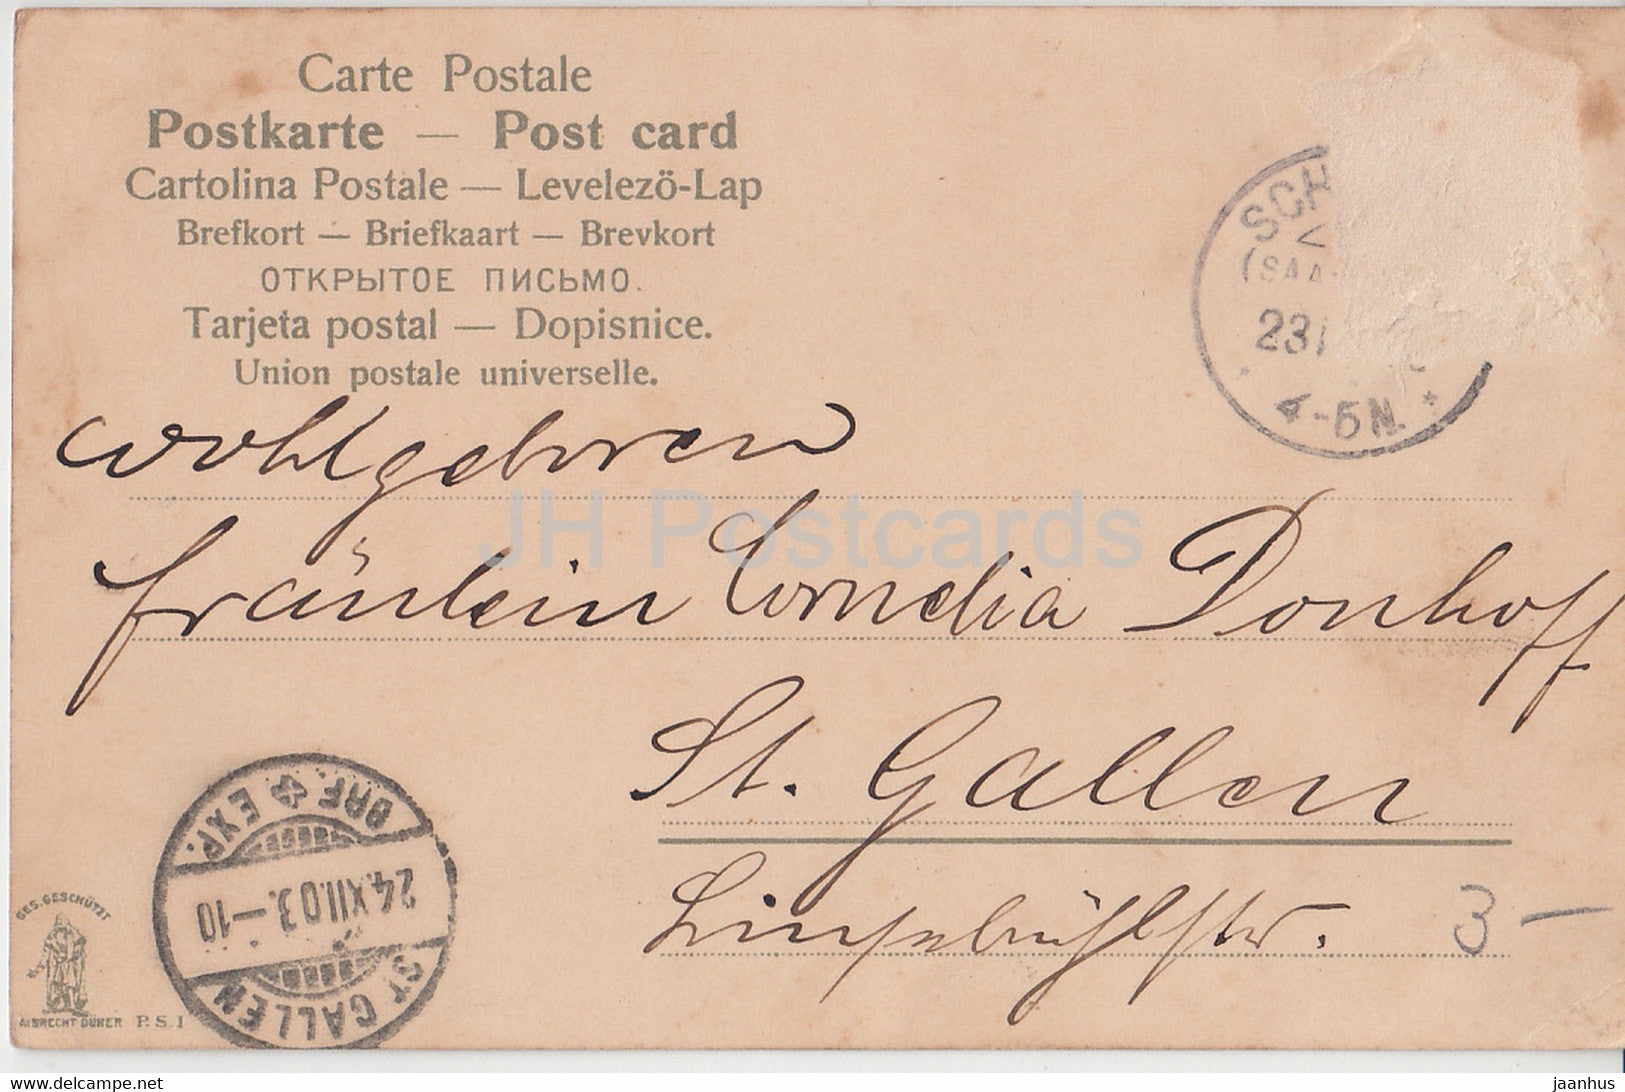 Carte Postale
Postkarte — Post card
Cartolina Postale — Levelezö-Lap
Brefkort — Briefkaart — Brevkort
ОТКРЫТОЕ ПИСЬМО.
Tarjeta postal — Dopisnice.
Union postale universelle.
SCH
(SAA
23
4-5N.
Wohlgeboren
Fräulein Cornelia Donhoff
St. Gallen
Linsebühlstr.
3 —
BRF. EXP.
24.XII.03.–10
ST. GALLEN
GES. GESCHÜTZT
ALBRECHT DÜRER P.S.I
JH Postcards
www.hippostcard.com
jaanhus